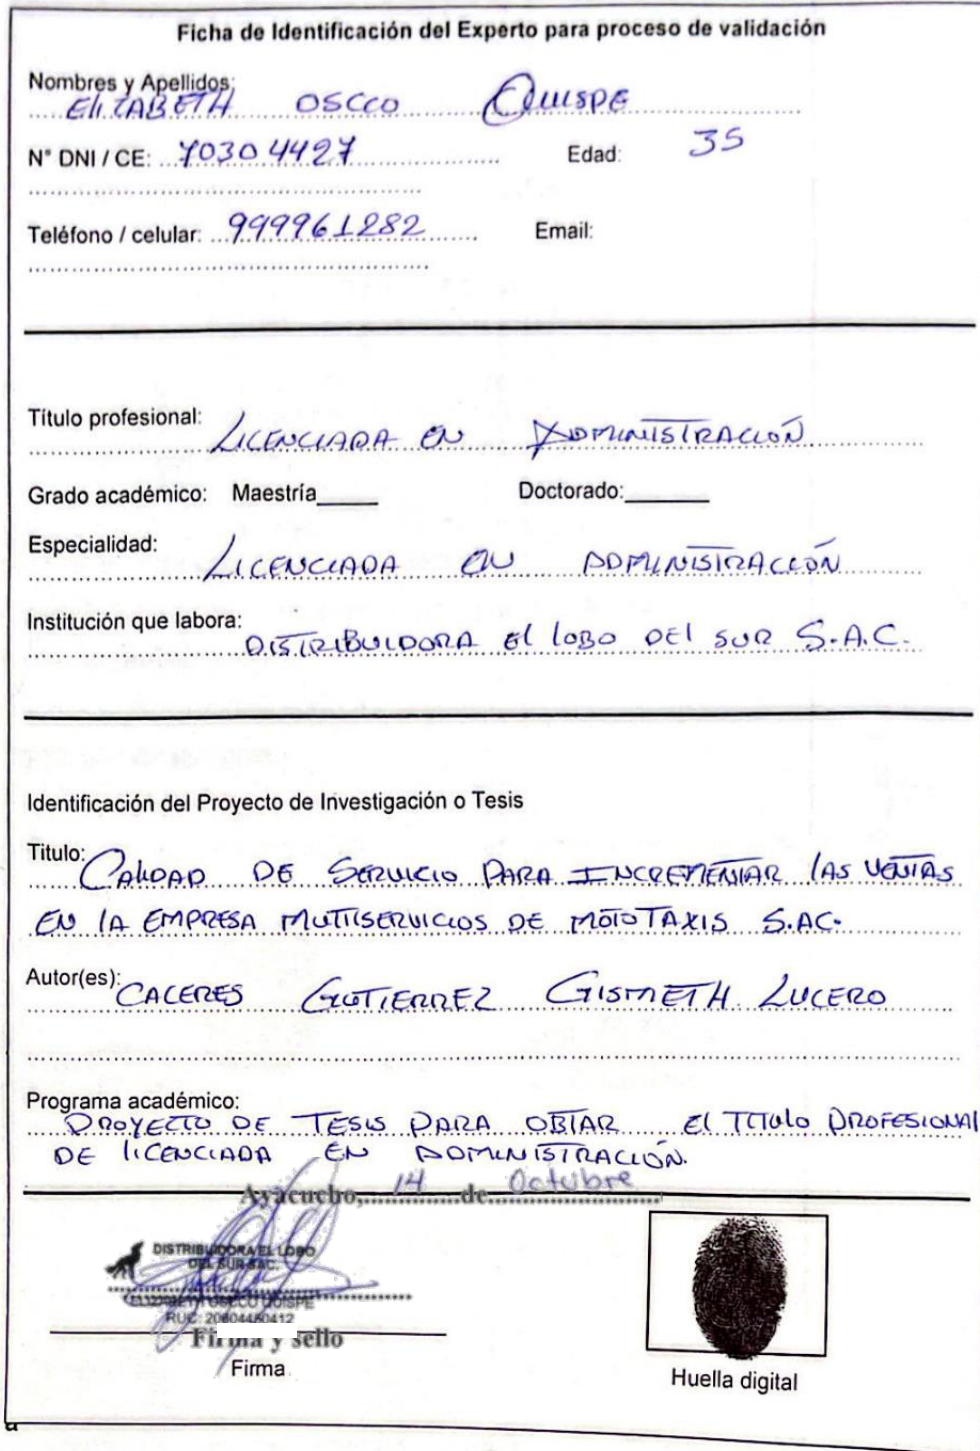 Ficha de Identificación del Experto para proceso de validación
Nombres y Apellidos:
ElIZABETH OSCCO QUISPE
N° DNI / CE: 70304427 Edad: 35
Teléfono / celular: 999961282 Email:
Título profesional:
LICENCIADA EN ADMINISTRACIÓN
Grado académico: Maestría_____ Doctorado:_______
Especialidad:
LICENCIADA EN ADMINISTRACCIÓN
Institución que labora:
DISTRIBUIDORA El lOBO DEl SUR S.A.C.
Identificación del Proyecto de Investigación o Tesis
Titulo: CALIDAD DE SERVICIO PARA INCREMENTAR lAS VENTAS
EN lA EMPRESA MULTISERVICIOS DE MOTOTAXIS S.AC.
Autor(es): CACERES GUTIERREZ GISMETH LUCERO
Programa académico:
PROYECTO DE TESIS PARA OBTAR El TITUlO PROFESIONAl
DE lICENCIADA EN ADMINISTRACIÓN.
Ayacucho, 14 de Octubre
DISTRIBUIDORA EL LOBO
DEL SUR SAC.
OSCCO QUISPE
RUC:
Firma y sello
Firma
Huella digital
a